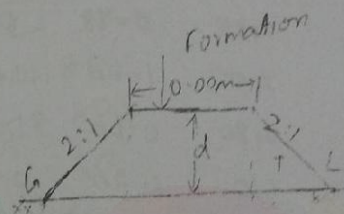 Formation
0.00m
2:1
d
2:1
G
L